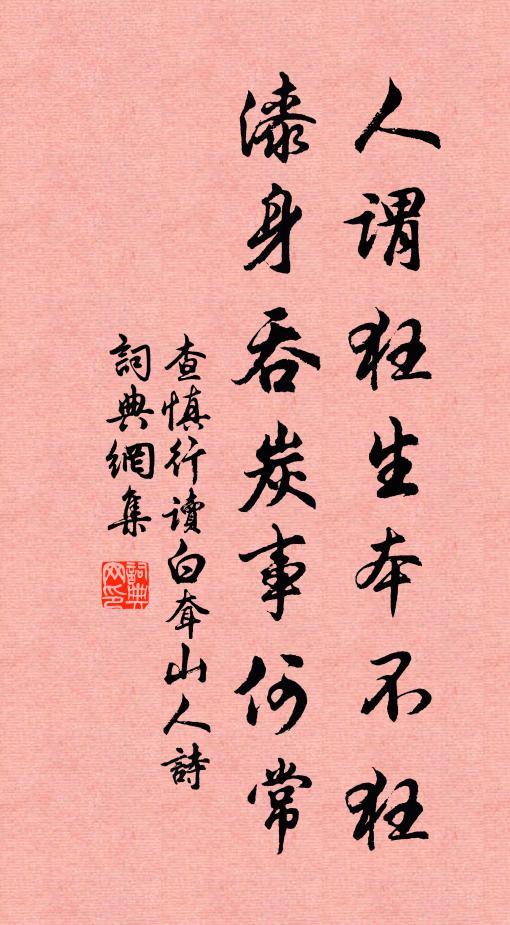 人謂狂生本不狂
漆身吞炭事何常
查慎行讀白耷山人詩
詞典網集
詞典网印